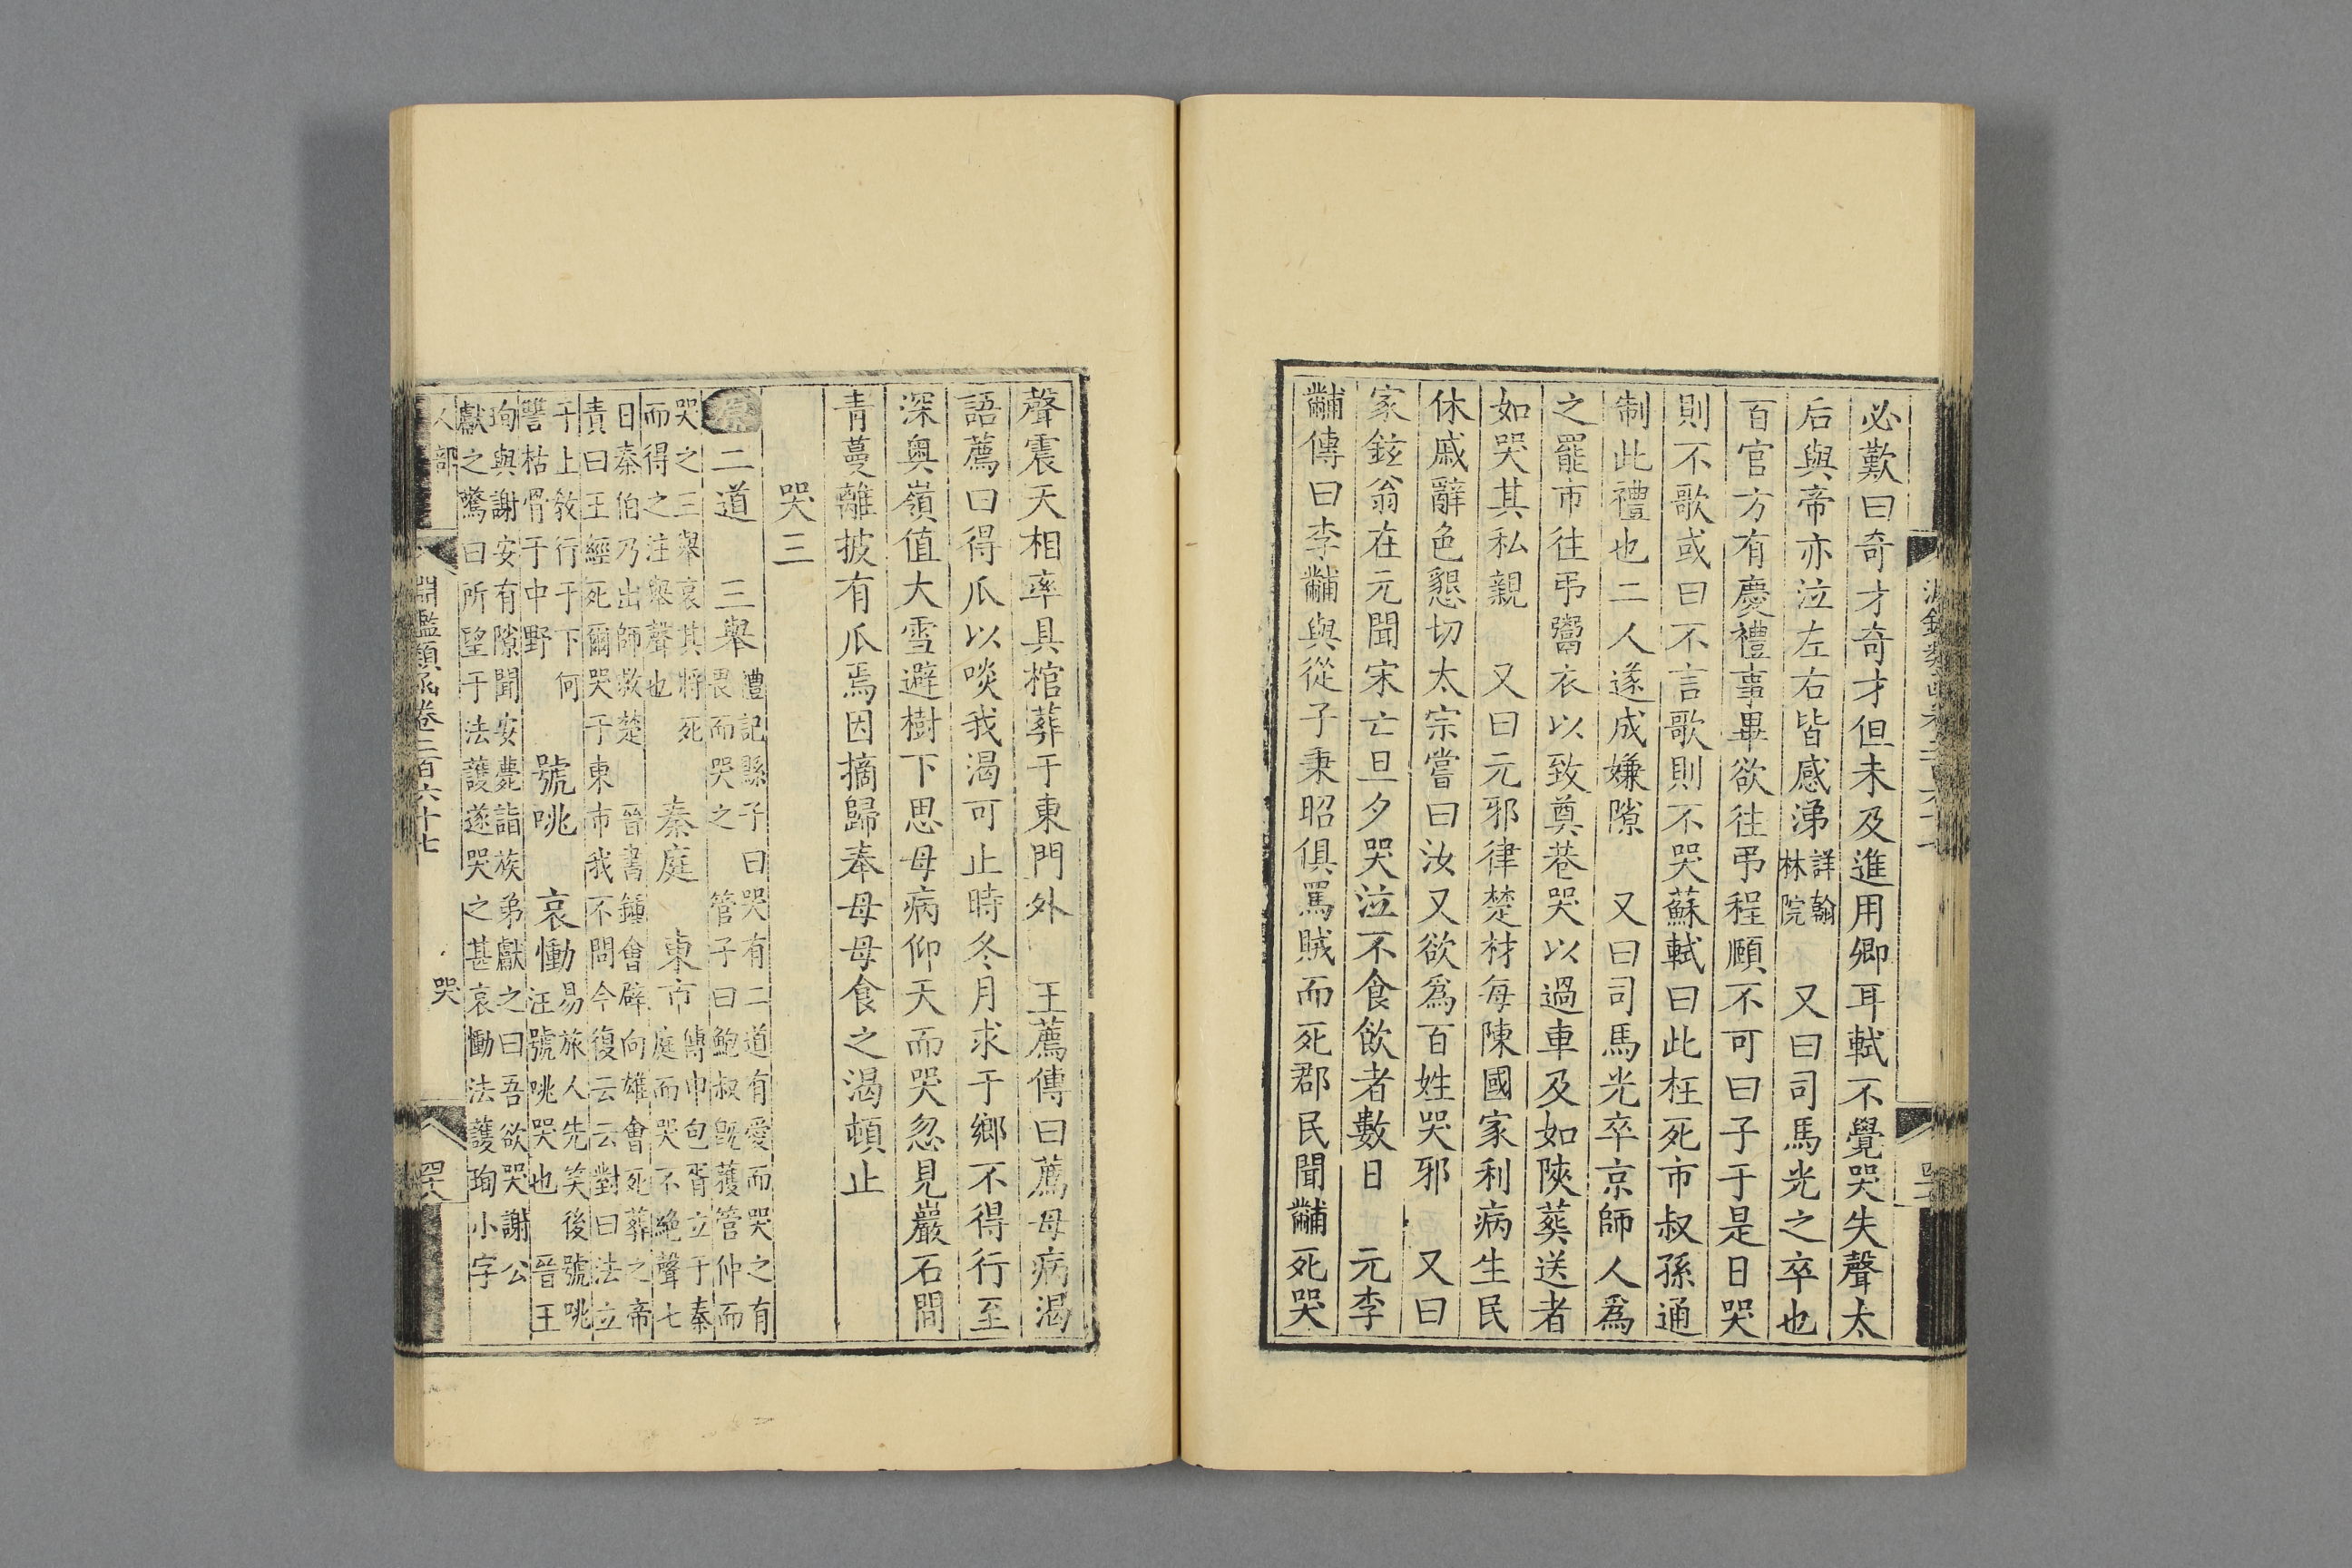 必歎曰奇才奇才但未及進用卿耳軾不覺哭失聲太
后與帝亦泣左右皆感涕
詳翰
林院
又曰司馬光之卒也
百官方有慶禮事畢欲往弔程頤不可曰子于是日哭
則不歌或曰不言歌則不哭蘇軾曰此枉死市叔孫通
制此禮也二人遂成嫌隙 又曰司馬光卒京師人爲
之罷市往弔鬻衣以致奠巷哭以過車及如陝葬送者
如哭其私親 又曰元邪律楚材每陳國家利病生民
休戚辭色懇切太宗嘗曰汝又欲爲百姓哭邪 又曰
家鉉翁在元聞宋亡旦夕哭泣不食飲者數日 元李
黼傳曰李黼與從子秉昭俱罵賊而死郡民聞黼死哭
聲震天相率具棺葬于東門外 王薦傳曰薦母病渴
語薦曰得瓜以啖我渴可止時冬月求于鄉不得行至
深奥嶺值大雪避樹下思母病仰天而哭忽見巖石間
青蔓離披有瓜焉因摘歸奉母母食之渴頓止
哭三
原 二道 三舉
禮記縣子曰哭有二道有愛而哭之有
畏而哭之 管子曰鮑叔旣獲管仲而
哭之三舉哀其將死
而得之注舉聲也
秦庭 東市
傳申包胥立于秦
庭而哭不絶聲七
日秦伯乃出師救楚 晉書鍾會辟向雄會死葬之帝
責曰王經死爾哭于東市我不問今復云云對曰法立
于上敎行于下何
讐枯骨于中野
號咷 哀慟
易旅人先笑後號咷
汪號咷哭也 晉王
珣與謝安有隙聞安薨詣族弟獻之曰吾欲哭謝公
獻之驚曰所望于法護遂哭之甚哀慟法護珣小字
人部
淵鑑類函卷二百六十七
哭